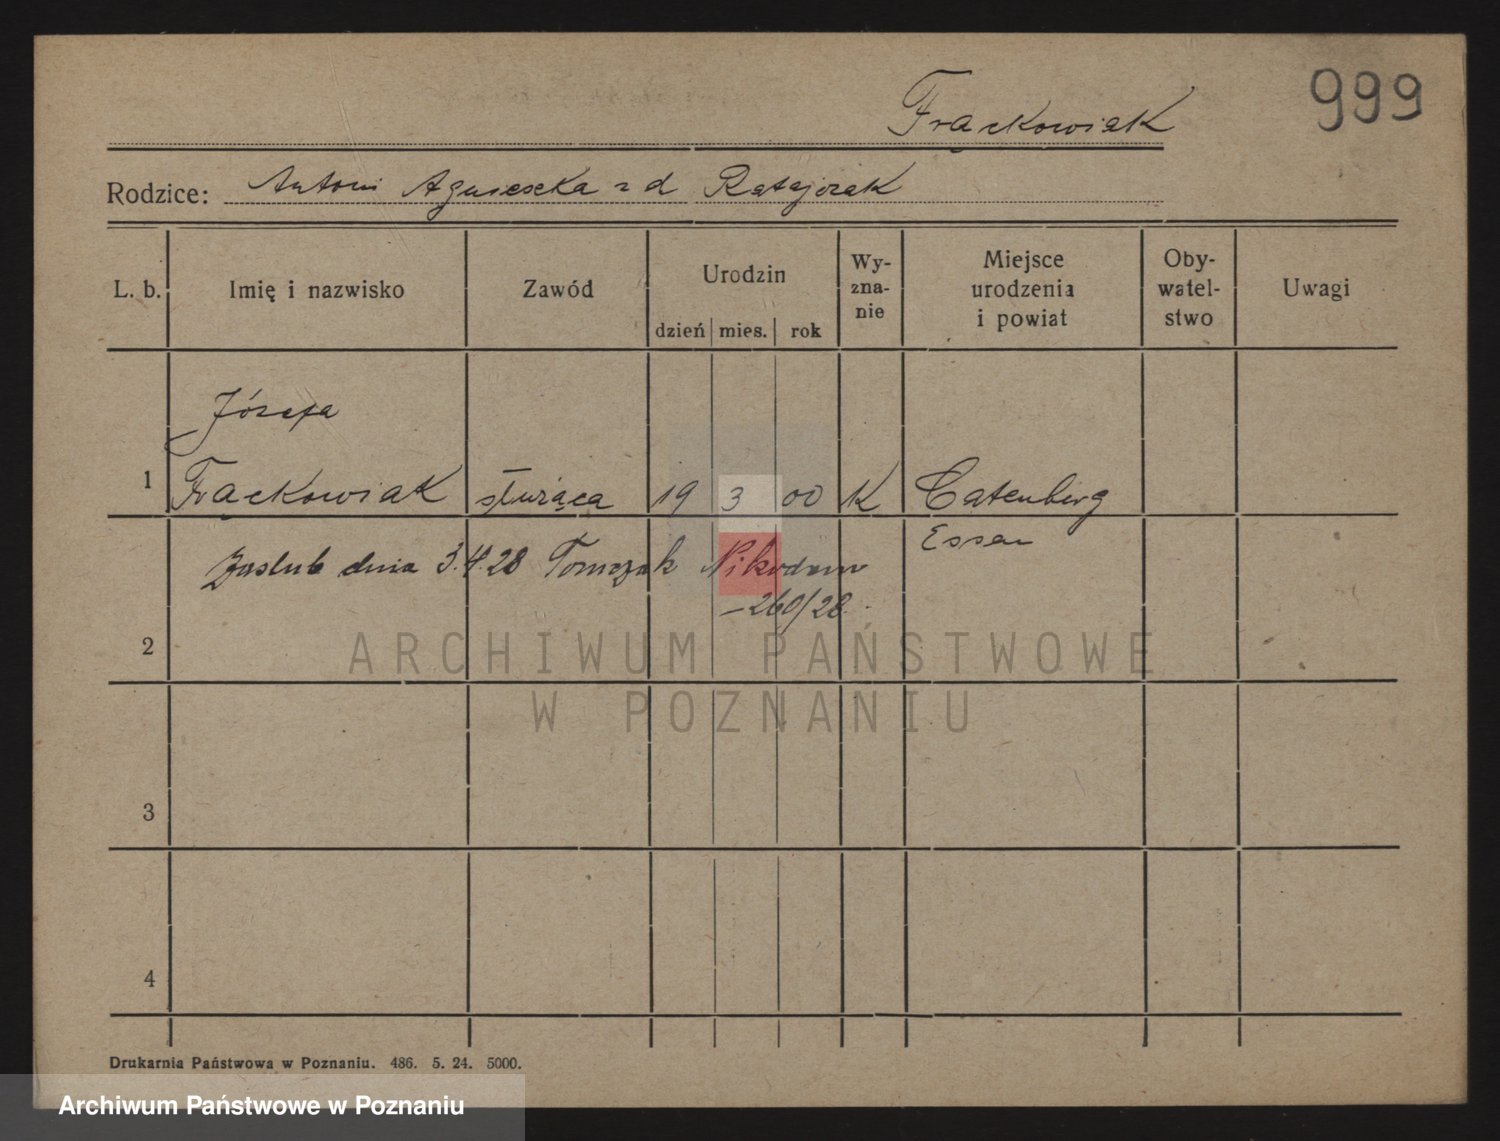 999
Frąckowiak
Rodzice: Antoni Agnieszka z d Ratajczak
L. b. Imię i nazwisko Zawód Urodzin dzień mies. rok Wy-zna-nie Miejsce urodzenia i powiat Oby-watel-stwo Uwagi
Józefa
1 Frąckowiak służąca 19 3 00 K Catenberg
Essen
Zaślub dnia 3.4.28 Tomczak Nikodem
-260/28
2
ARCHIWUM PAŃSTWOWE
W POZNANIU
3
4
Drukarnia Państwowa w Poznaniu. 486. 5. 24. 5000.
Archiwum Państwowe w Poznaniu